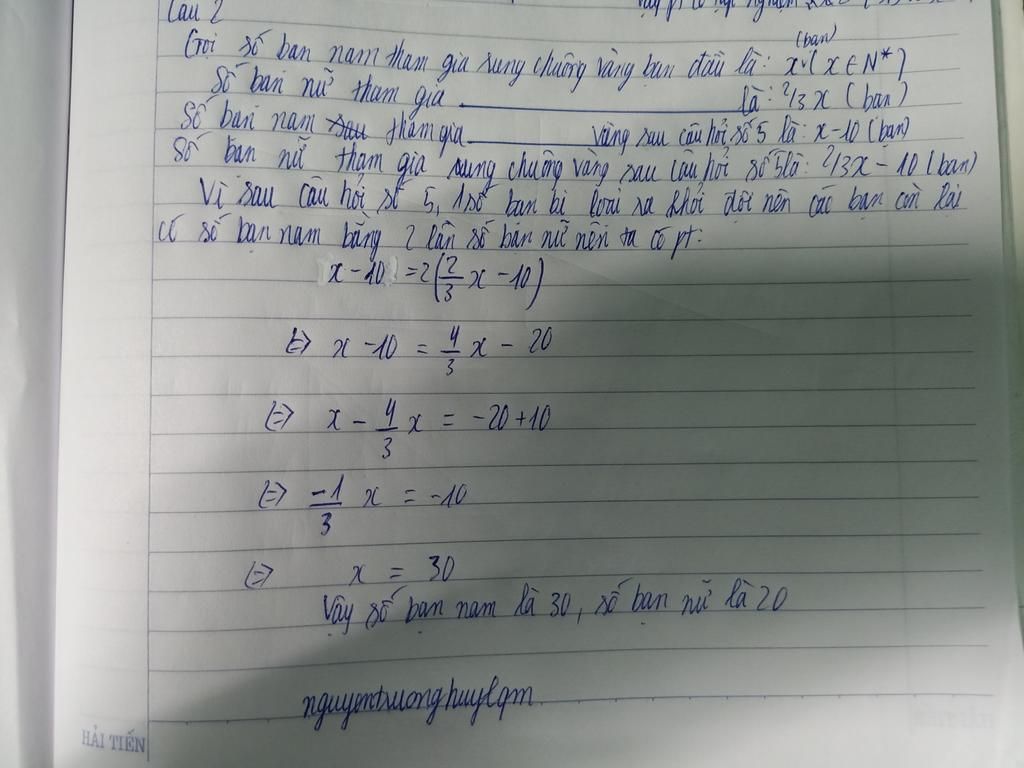 Câu 2
vậy pt có ngh nghiệm
(bạn)
Gọi số bạn nam tham gia rung chuông vàng ban đầu là: x (x ∈ N*)
Số bạn nữ tham gia ________ là: 2/3 x (bạn)
Số bạn nam sau tham gia ________ vàng sau câu hỏi số 5 là: x-10 (bạn)
Số bạn nữ tham gia rung chuông vàng sau câu hỏi số 5 là: 2/3x - 10 (bạn)
Vì sau câu hỏi số 5, 1 số bạn bị loại ra khỏi đội nên các bạn còn lại
có số bạn nam bằng 2 lần số bạn nữ nên ta có pt:
x - 10 = 2(2/3 x - 10)
<=> x - 10 = 4/3 x - 20
<=> x - 4/3 x = -20 + 10
<=> -1/3 x = -10
<=> x = 30
Vậy số bạn nam là 30, số bạn nữ là 20
nguyentruonghuylqm
HẢI TIẾN